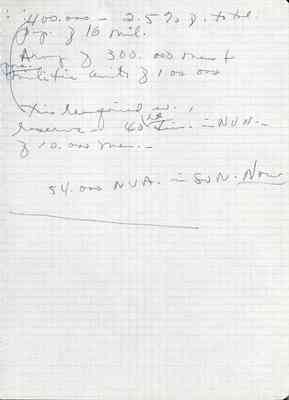 400.000 - 2.5% of total
Pop. of 16 mil.
Army of 300.000 men +
militia units of 100 000
This required in
reserve - 40 Div. in NVN. -
of 10.000 men. -
54.000 NVA. in SVN. Now